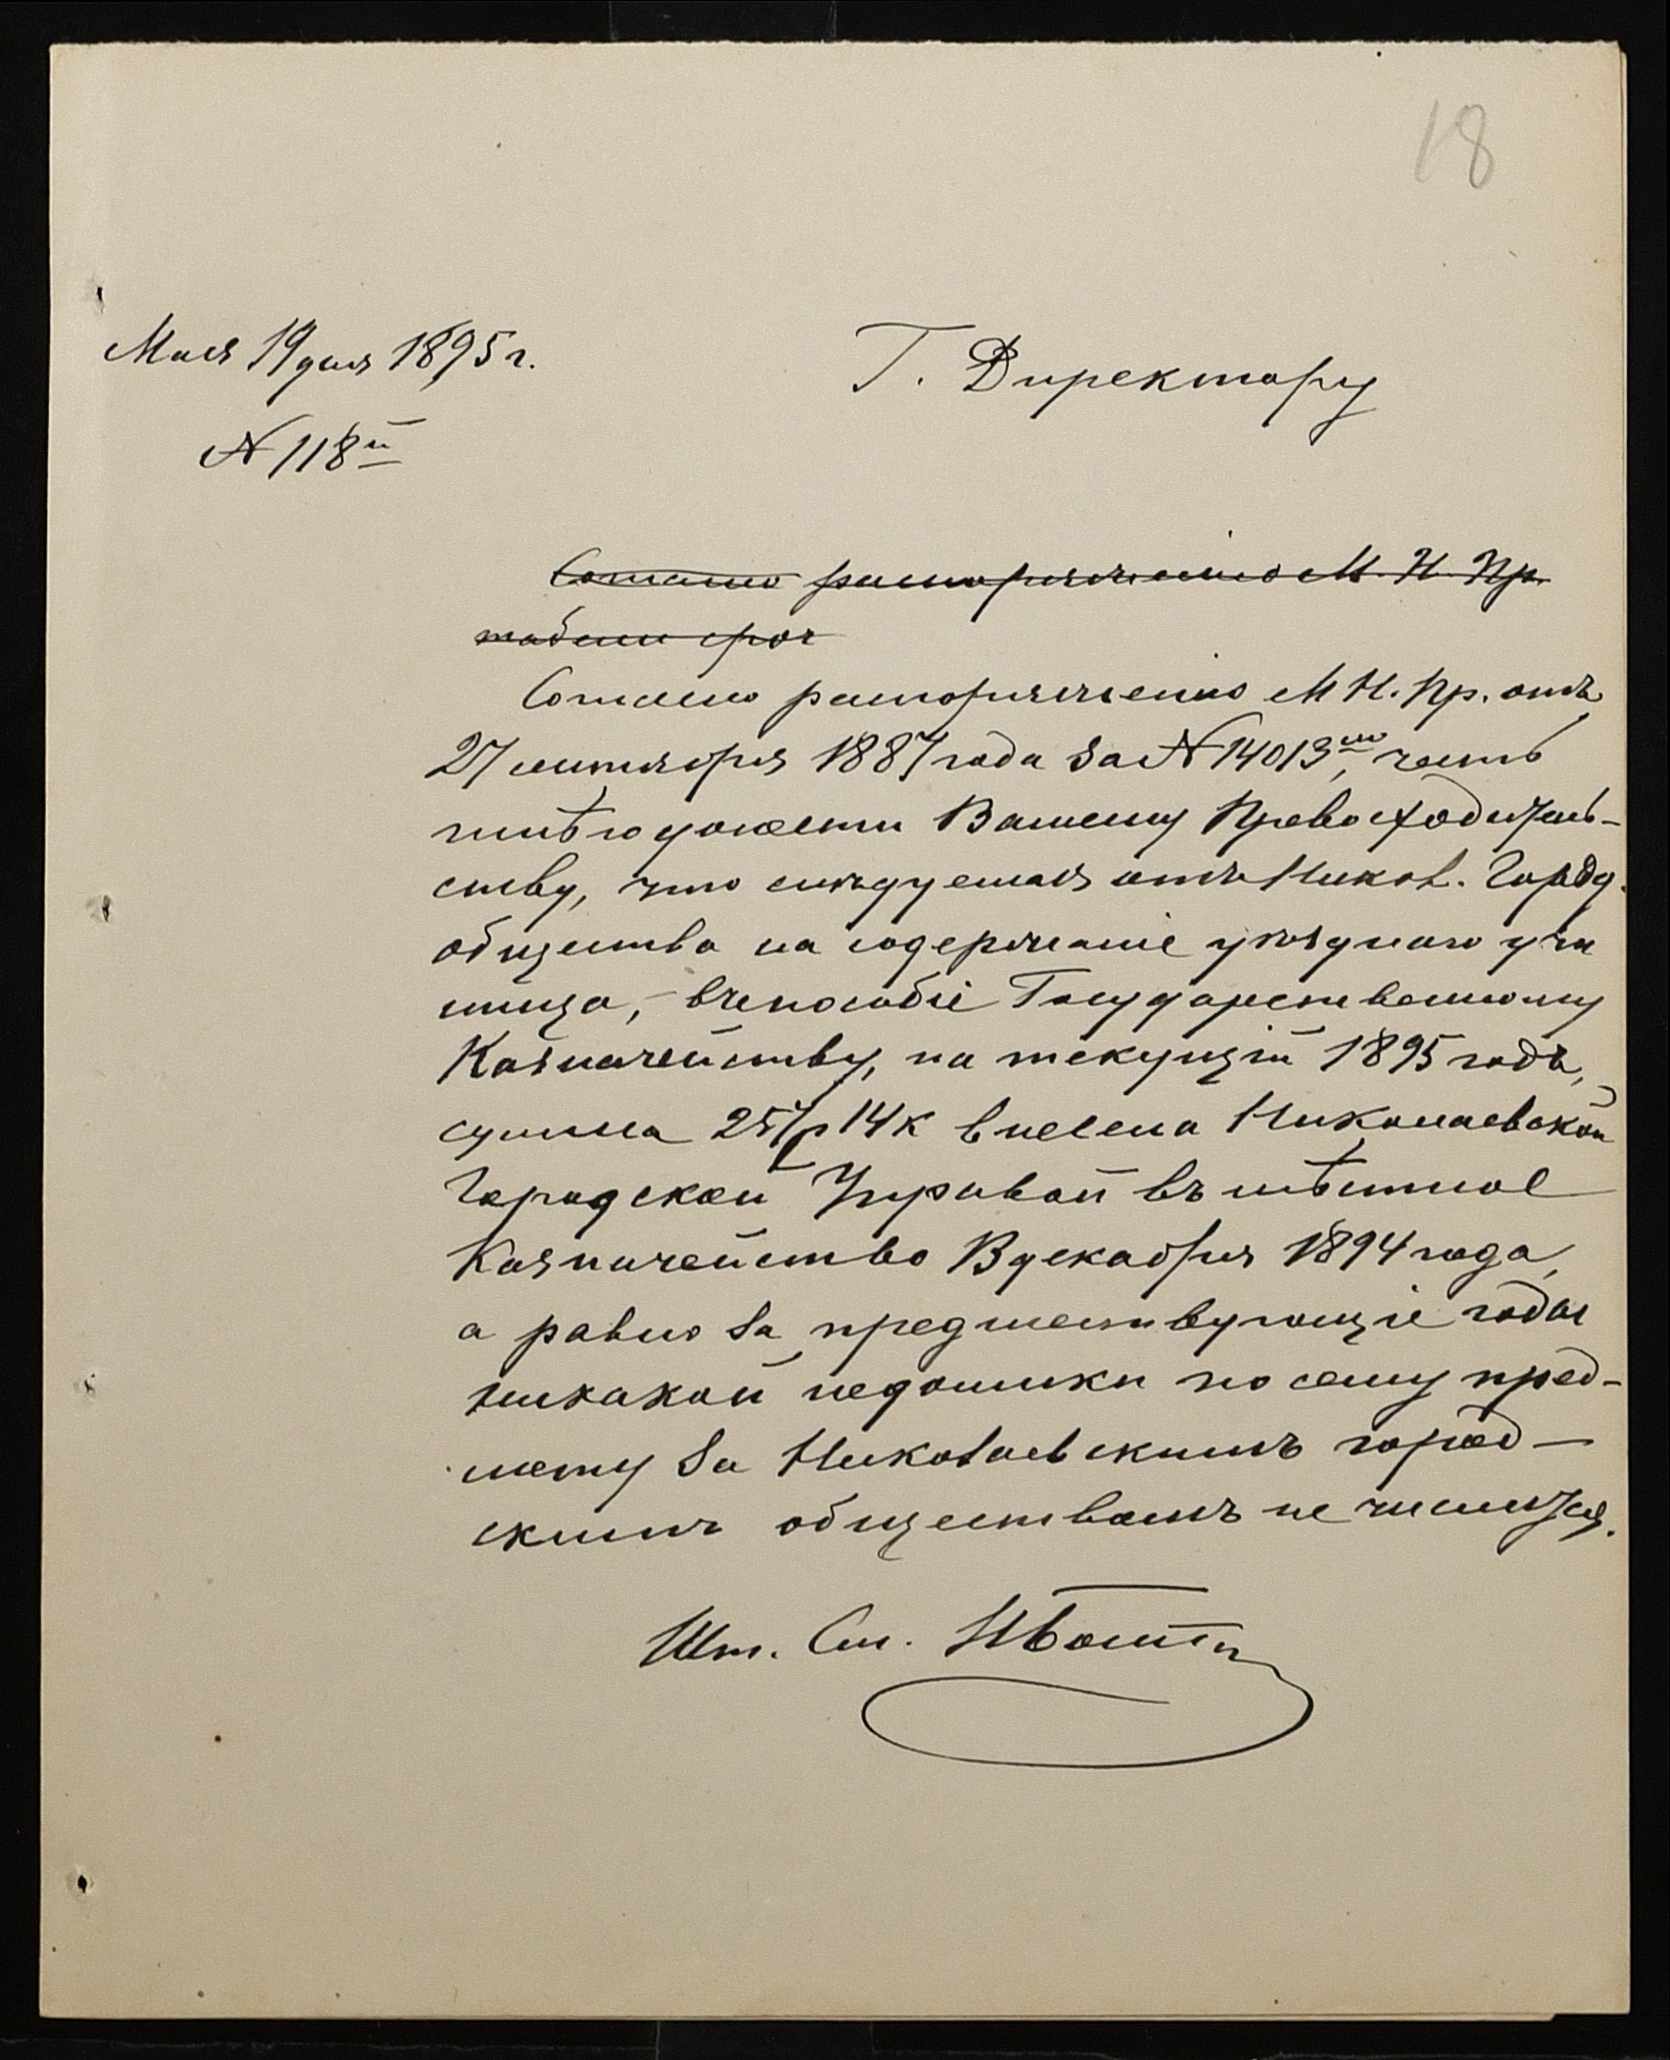 18
Мая 19 дня 1895 г.
№ 118й
Г. Директору
Согласно распоряженію М. Н. Пр.
Согласно распоряженію М Н. Пр. отъ
27 сентября 1887 года за № 14013мъ, честь
имѣю донести Вашему Превосходитель-
ству, что слѣдуемая отъ Никол. Городд.
общества на содержаніе уѣзднаго учи
лища, въ пособіе Государственному
Казначейству, на текущій 1895 годъ,
сумма 257 р 14 к внесена Николаевской
Городской Управой въ мѣстное
Казначейство 13 декабря 1894 года,
а равно за предшествующіе годы
никакой недоимки по сему пред-
мету за Николаевскимъ город-
скимъ обществомъ не числится.
Шт. См.